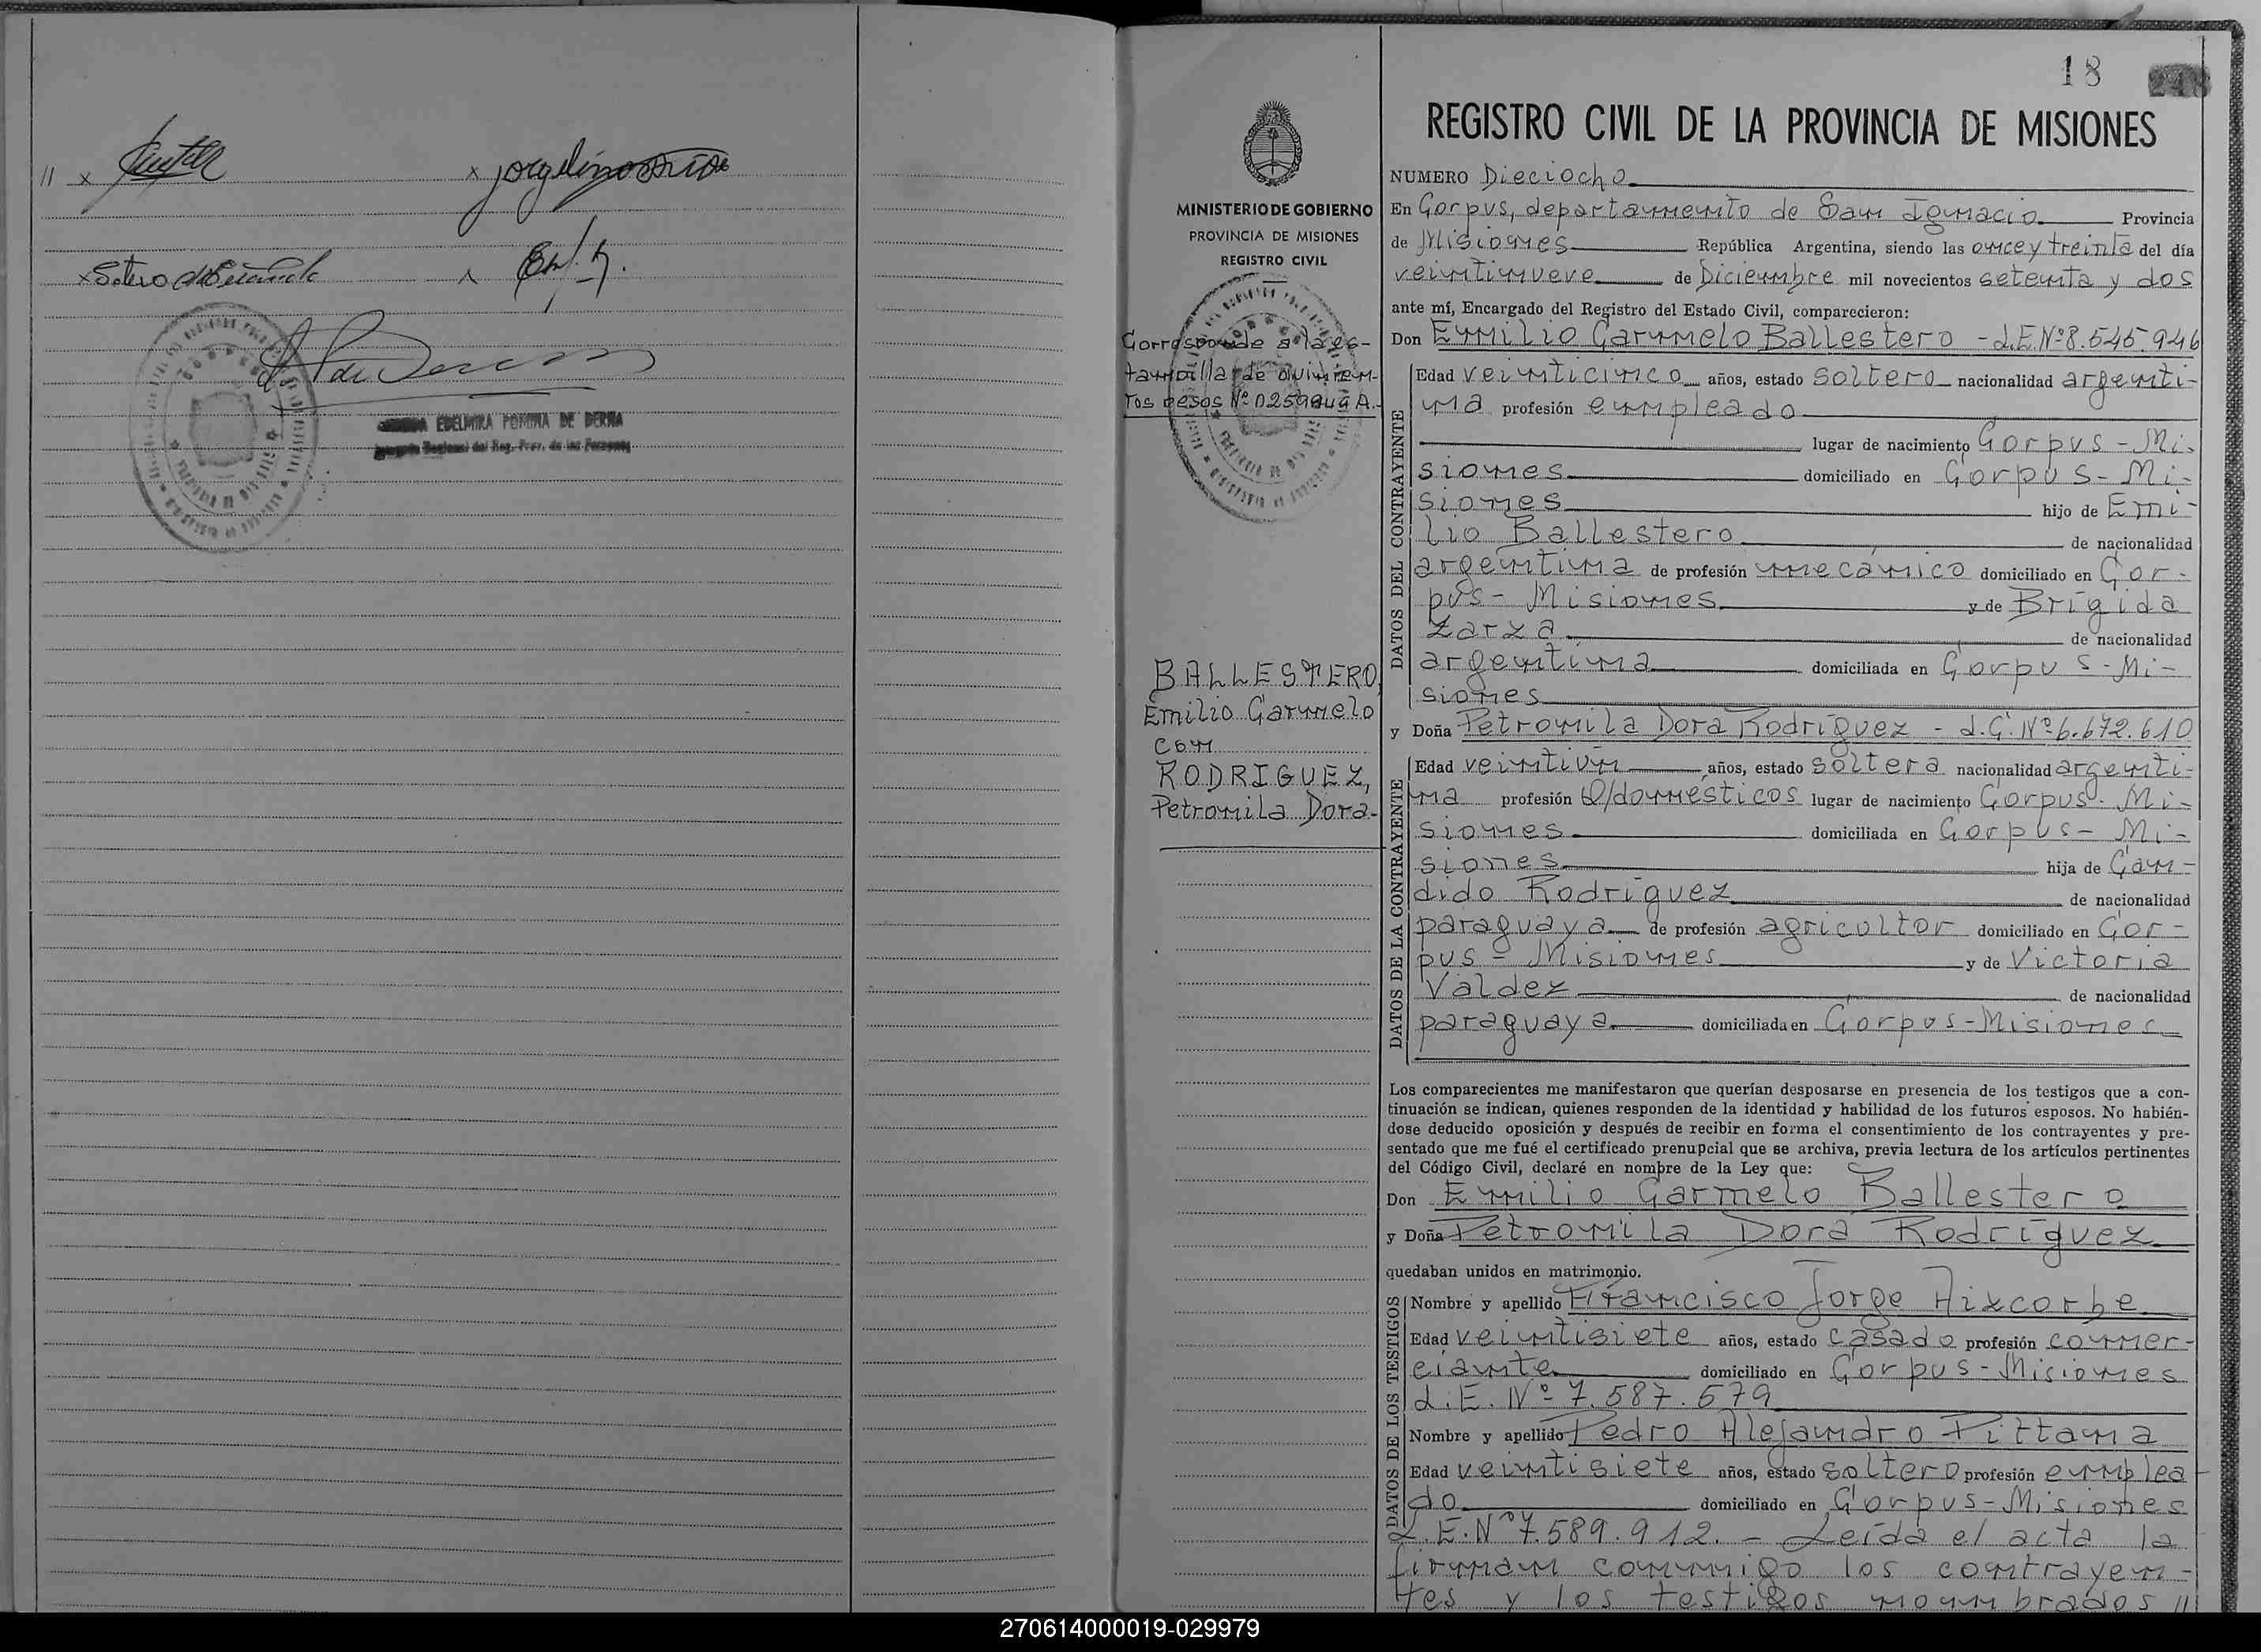 18
REGISTRO CIVIL DE LA PROVINCIA DE MISIONES
MINISTERIO DE GOBIERNO
PROVINCIA DE MISIONES
REGISTRO CIVIL
Corresponde a la es-
tampilla de quinien-
tos pesos Nº
BALLESTERO,
Emilio Carmelo
con
RODRIGUEZ,
Petronila Dora-
NUMERO Dieciocho
En Corpus, departamento de San Ignacio Provincia
de Misiones República Argentina, siendo las once y treinta del día
veintinueve de Diciembre mil novecientos setenta y dos
ante mí, Encargado del Registro del Estado Civil, comparecieron:
Don Emilio Carmelo Ballestero - L.E. Nº 8.545.946
DATOS DEL CONTRAYENTE
Edad veinticinco años, estado soltero nacionalidad argenti-
na profesión empleado
lugar de nacimiento Corpus - Mi-
siones domiciliado en Corpus - Mi-
siones hijo de Emi-
lio Ballestero de nacionalidad
argentina de profesión mecánico domiciliado en Cor-
pus - Misiones y de Brígida
Zarza de nacionalidad
argentina domiciliada en Corpus - Mi-
siones
y Doña Petronila Dora Rodríguez - L.C. Nº 6.672.610
DATOS DE LA CONTRAYENTE
Edad veintiún años, estado soltera nacionalidad argenti-
na profesión Q/domésticos lugar de nacimiento Corpus - Mi-
siones domiciliada en Corpus - Mi-
siones hija de Can-
dido Rodríguez de nacionalidad
paraguaya de profesión agricultor domiciliado en Cor-
pus - Misiones y de Victoria
Valdez de nacionalidad
paraguaya domiciliada en Corpus - Misiones
Los comparecientes me manifestaron que querían desposarse en presencia de los testigos que a con-
tinuación se indican, quienes responden de la identidad y habilidad de los futuros esposos. No habién-
dose deducido oposición y después de recibir en forma el consentimiento de los contrayentes y pre-
sentado que me fué el certificado prenupcial que se archiva, previa lectura de los artículos pertinentes
del Código Civil, declaré en nombre de la Ley que:
Don Emilio Carmelo Ballestero
y Doña Petronila Dora Rodríguez
quedaban unidos en matrimonio.
DATOS DE LOS TESTIGOS
Nombre y apellido Francisco Jorge Aixcorbe
Edad veintisiete años, estado casado profesión comer-
ciante domiciliado en Corpus - Misiones
L.E. Nº 7.587.579
Nombre y apellido Pedro Alejandro Pittana
Edad veintisiete años, estado soltero profesión emplea-
do domiciliado en Corpus - Misiones
L.E. Nº 7.589.912. - Leída el acta la
firman conmigo los contrayen-
tes y los testigos nombrados //
270614000019-029979